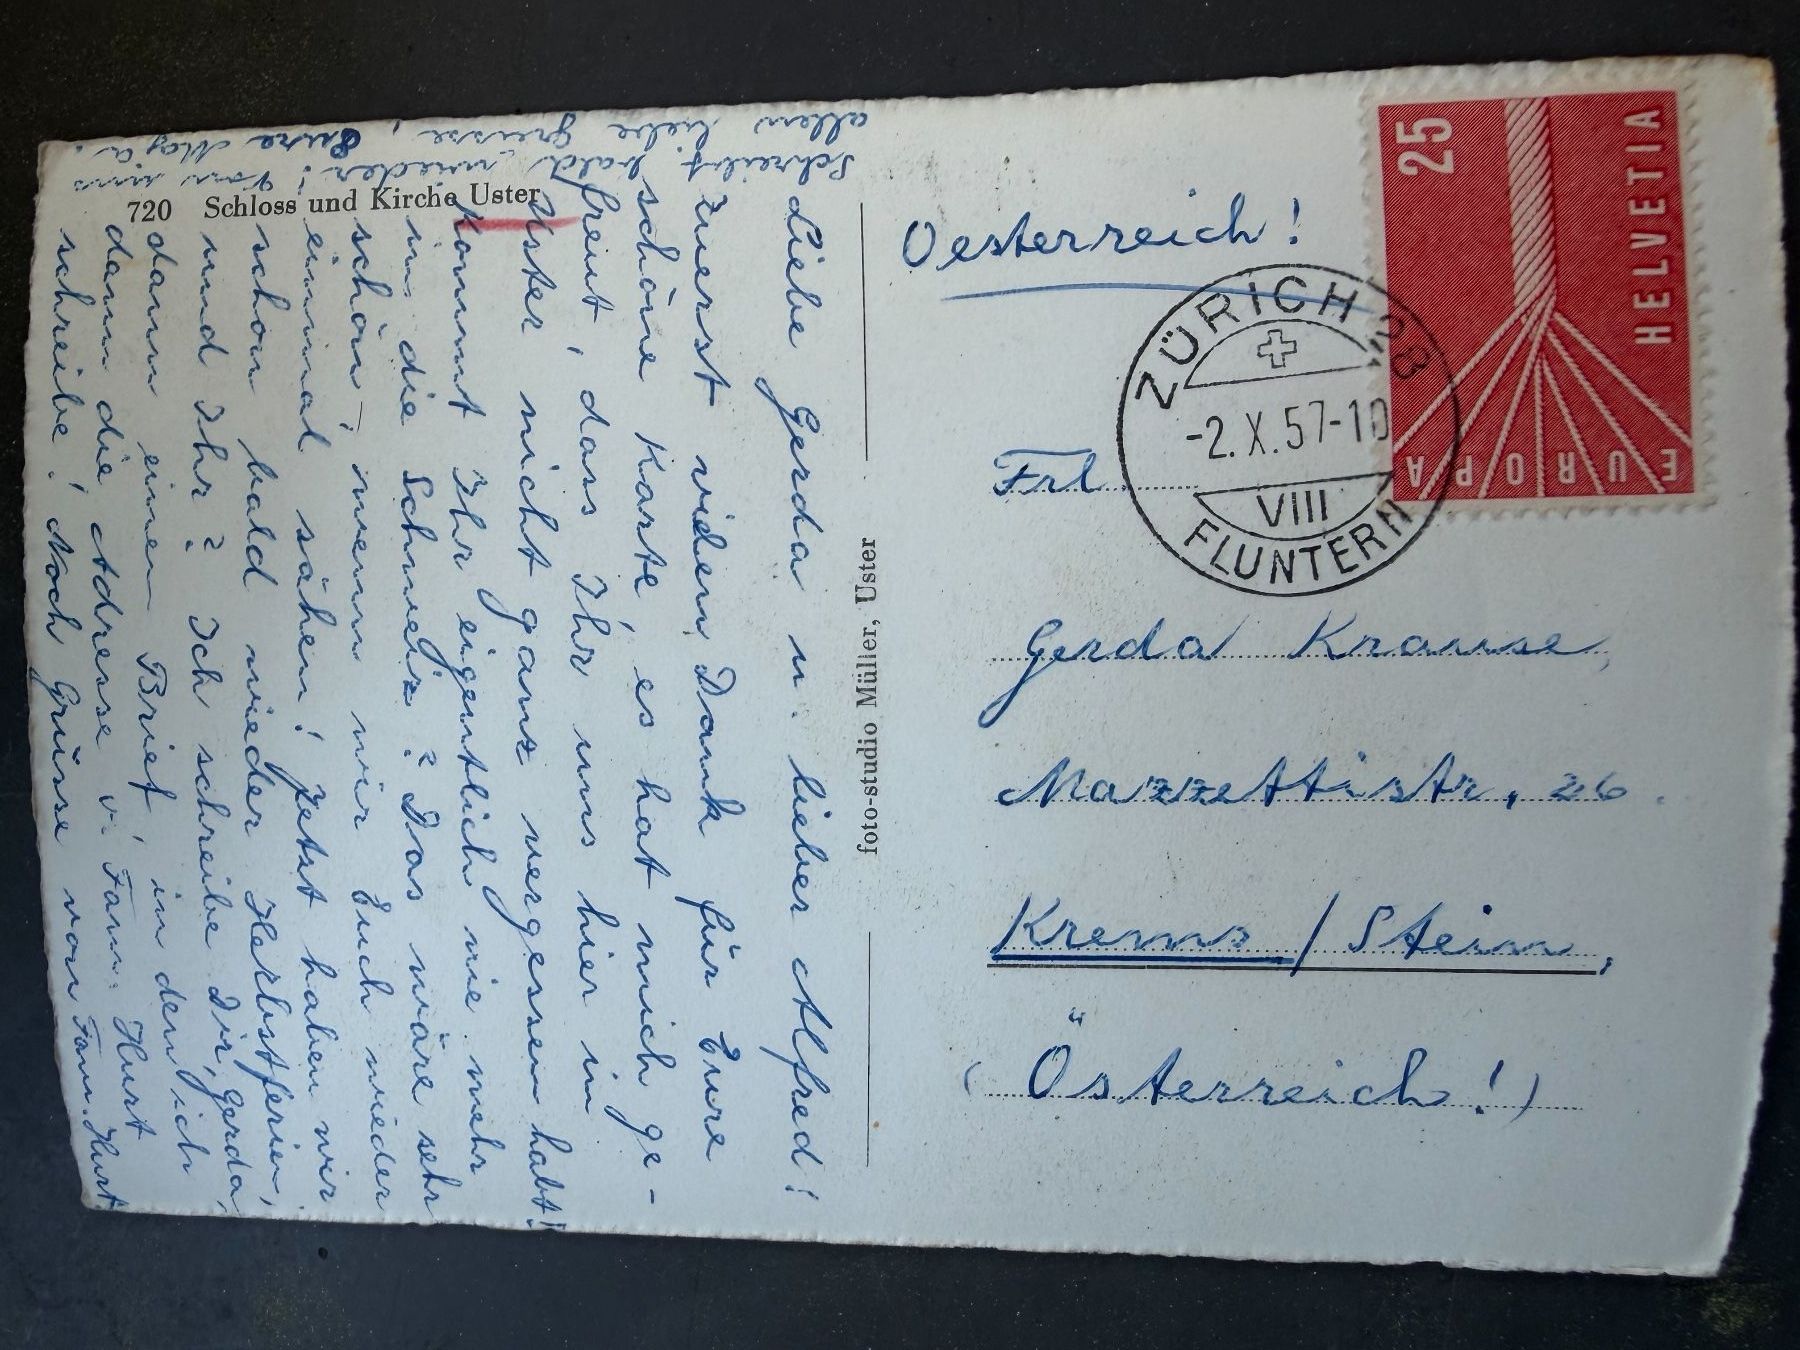 720 Schloss und Kirche Uster
Liebe Gerda u. lieber Alfred!
Zuerst vielen Dank für Eure
schöne Karte, es hat mich ge-
freut, dass Ihr uns hier in
Uster nicht ganz vergessen habt!
Kommt Ihr eigentlich nie mehr
in die Schweiz? Das wäre sehr
schön, wenn wir Euch wieder
einmal sähen! Jetzt haben wir
schon bald wieder Herbstferien,
und Ihr? Ich schreibe Dir, Gerda,
dann einen Brief, in den ich
dann die Adresse v. Fam. Hurt
schreibe! Noch Grüsse von Fam. Hurt.
Schreibt bald wieder! Von uns
allen liebe Grüsse, Eure Maja.
foto-studio Müller, Uster
Oesterreich!
Frl.
Gerda Krause,
Mazzettistr. 26.
Krems / Stein,
(Österreich!)
ZÜRICH 28
-2.X.57-10
VIII
FLUNTERN
25
HELVETIA
EUROPA